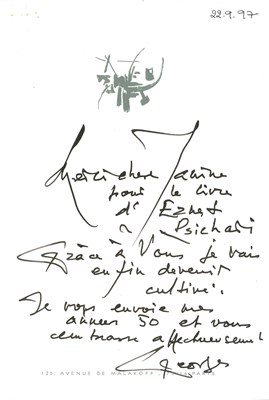 22.9.97
Merci chère Janine
pour le livre
d'Ernest
Psichari
Grâce à Vous je vais
enfin devenir
cultivé.
Je vous envoie mes
années 50 et vous
embrasse affectueusement
Georges
120, AVENUE DE MALAKOFF PARIS